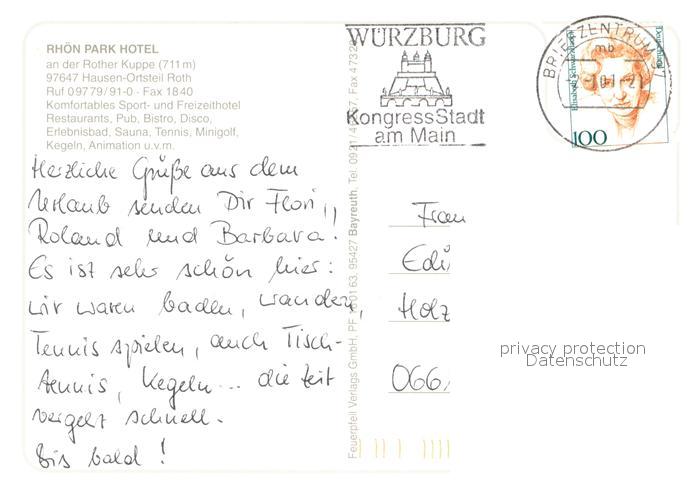 RHÖN PARK HOTEL
an der Rother Kuppe (711m)
97647 Hausen-Ortsteil Roth
Ruf 09779/91-0 · Fax 1840
Komfortables Sport- und Freizeithotel
Restaurants, Pub, Bistro, Disco,
Erlebnisbad, Sauna, Tennis, Minigolf,
Kegeln, Animation u.v.m.
Herzliche Grüße aus dem
Urlaub senden Dir Flori,
Roland und Barbara!
Es ist sehr schön hier:
wir waren baden, wandern,
Tennis spielen, auch Tisch-
tennis, Kegeln... die Zeit
vergeht schnell.
Bis bald!
Feuerpfeil Verlags GmbH, PF 10 01 63, 95427 Bayreuth, Tel. 0921/ Fax 4732
WÜRZBURG
KongressStadt
am Main
BRIEFZENTRUM 97
mb
Deutschland
Elisabeth Schwarzhaupt
100
Frau
Edi
Holz
066
privacy protection
Datenschutz